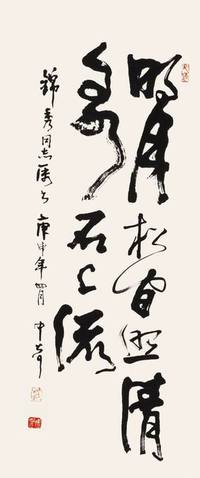 明月松间照清
泉石上流
錦秀同志属书 庚申年四月 中奇